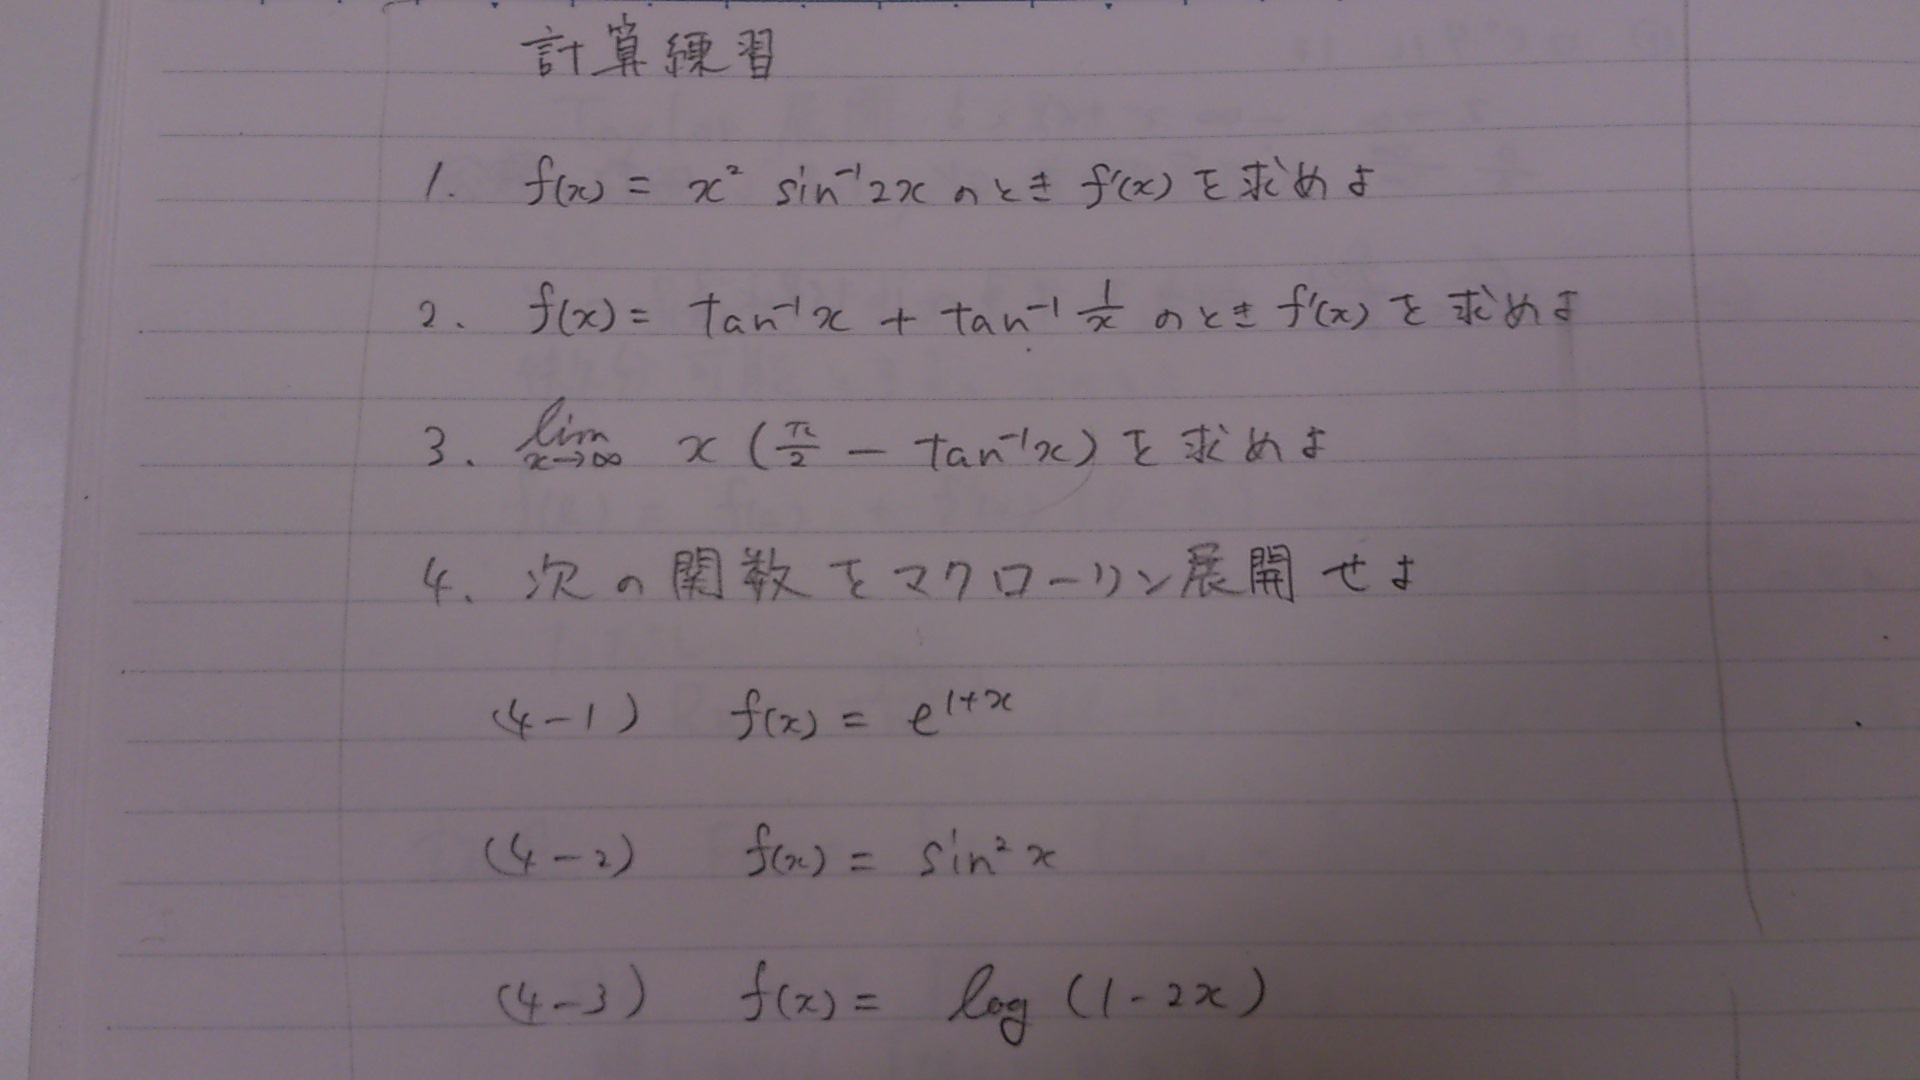 計算練習
1. f(x) = x² sin⁻¹2x のとき f'(x) を求めよ
2. f(x) = tan⁻¹x + tan⁻¹ 1/x のとき f'(x) を求めよ
3. lim x→∞ x (π/2 − tan⁻¹x) を求めよ
4. 次の関数をマクローリン展開せよ
(4-1) f(x) = e¹⁺ˣ
(4-2) f(x) = sin² x
(4-3) f(x) = log (1-2x)